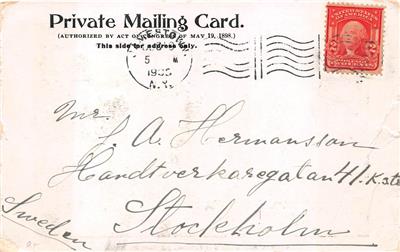 Private Mailing Card.
(AUTHORIZED BY ACT OF CONGRESS OF MAY 19, 1898.)
This side for address only.
5 M
N.Y.
UNITED STATES
OF AMERICA
2 2
TWO CENTS
Mr.
J. A. Hermansson
Handtverkaregatan 41.
Stockholm
Sweden